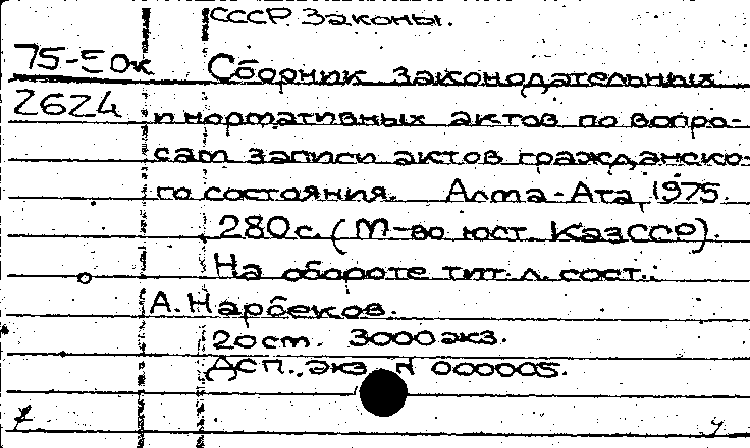 СССР. Законы.
75-50к Сборник законодательных
2624 и нормативных актов по вопро-
сам записи актов гражданско-
го состояния. Алма-Ата, 1975.
280с. (М-во юст. КазССР).
На обороте тит. л. сост.:
А. Нарбеков.
20ст. 3000экз.
ДСП. экз. N 000005.